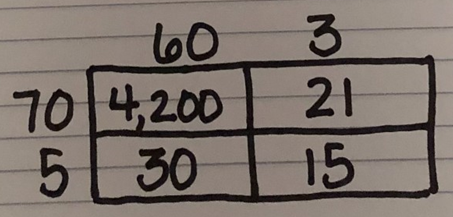 60 3
70 4,200 21
5 30 15